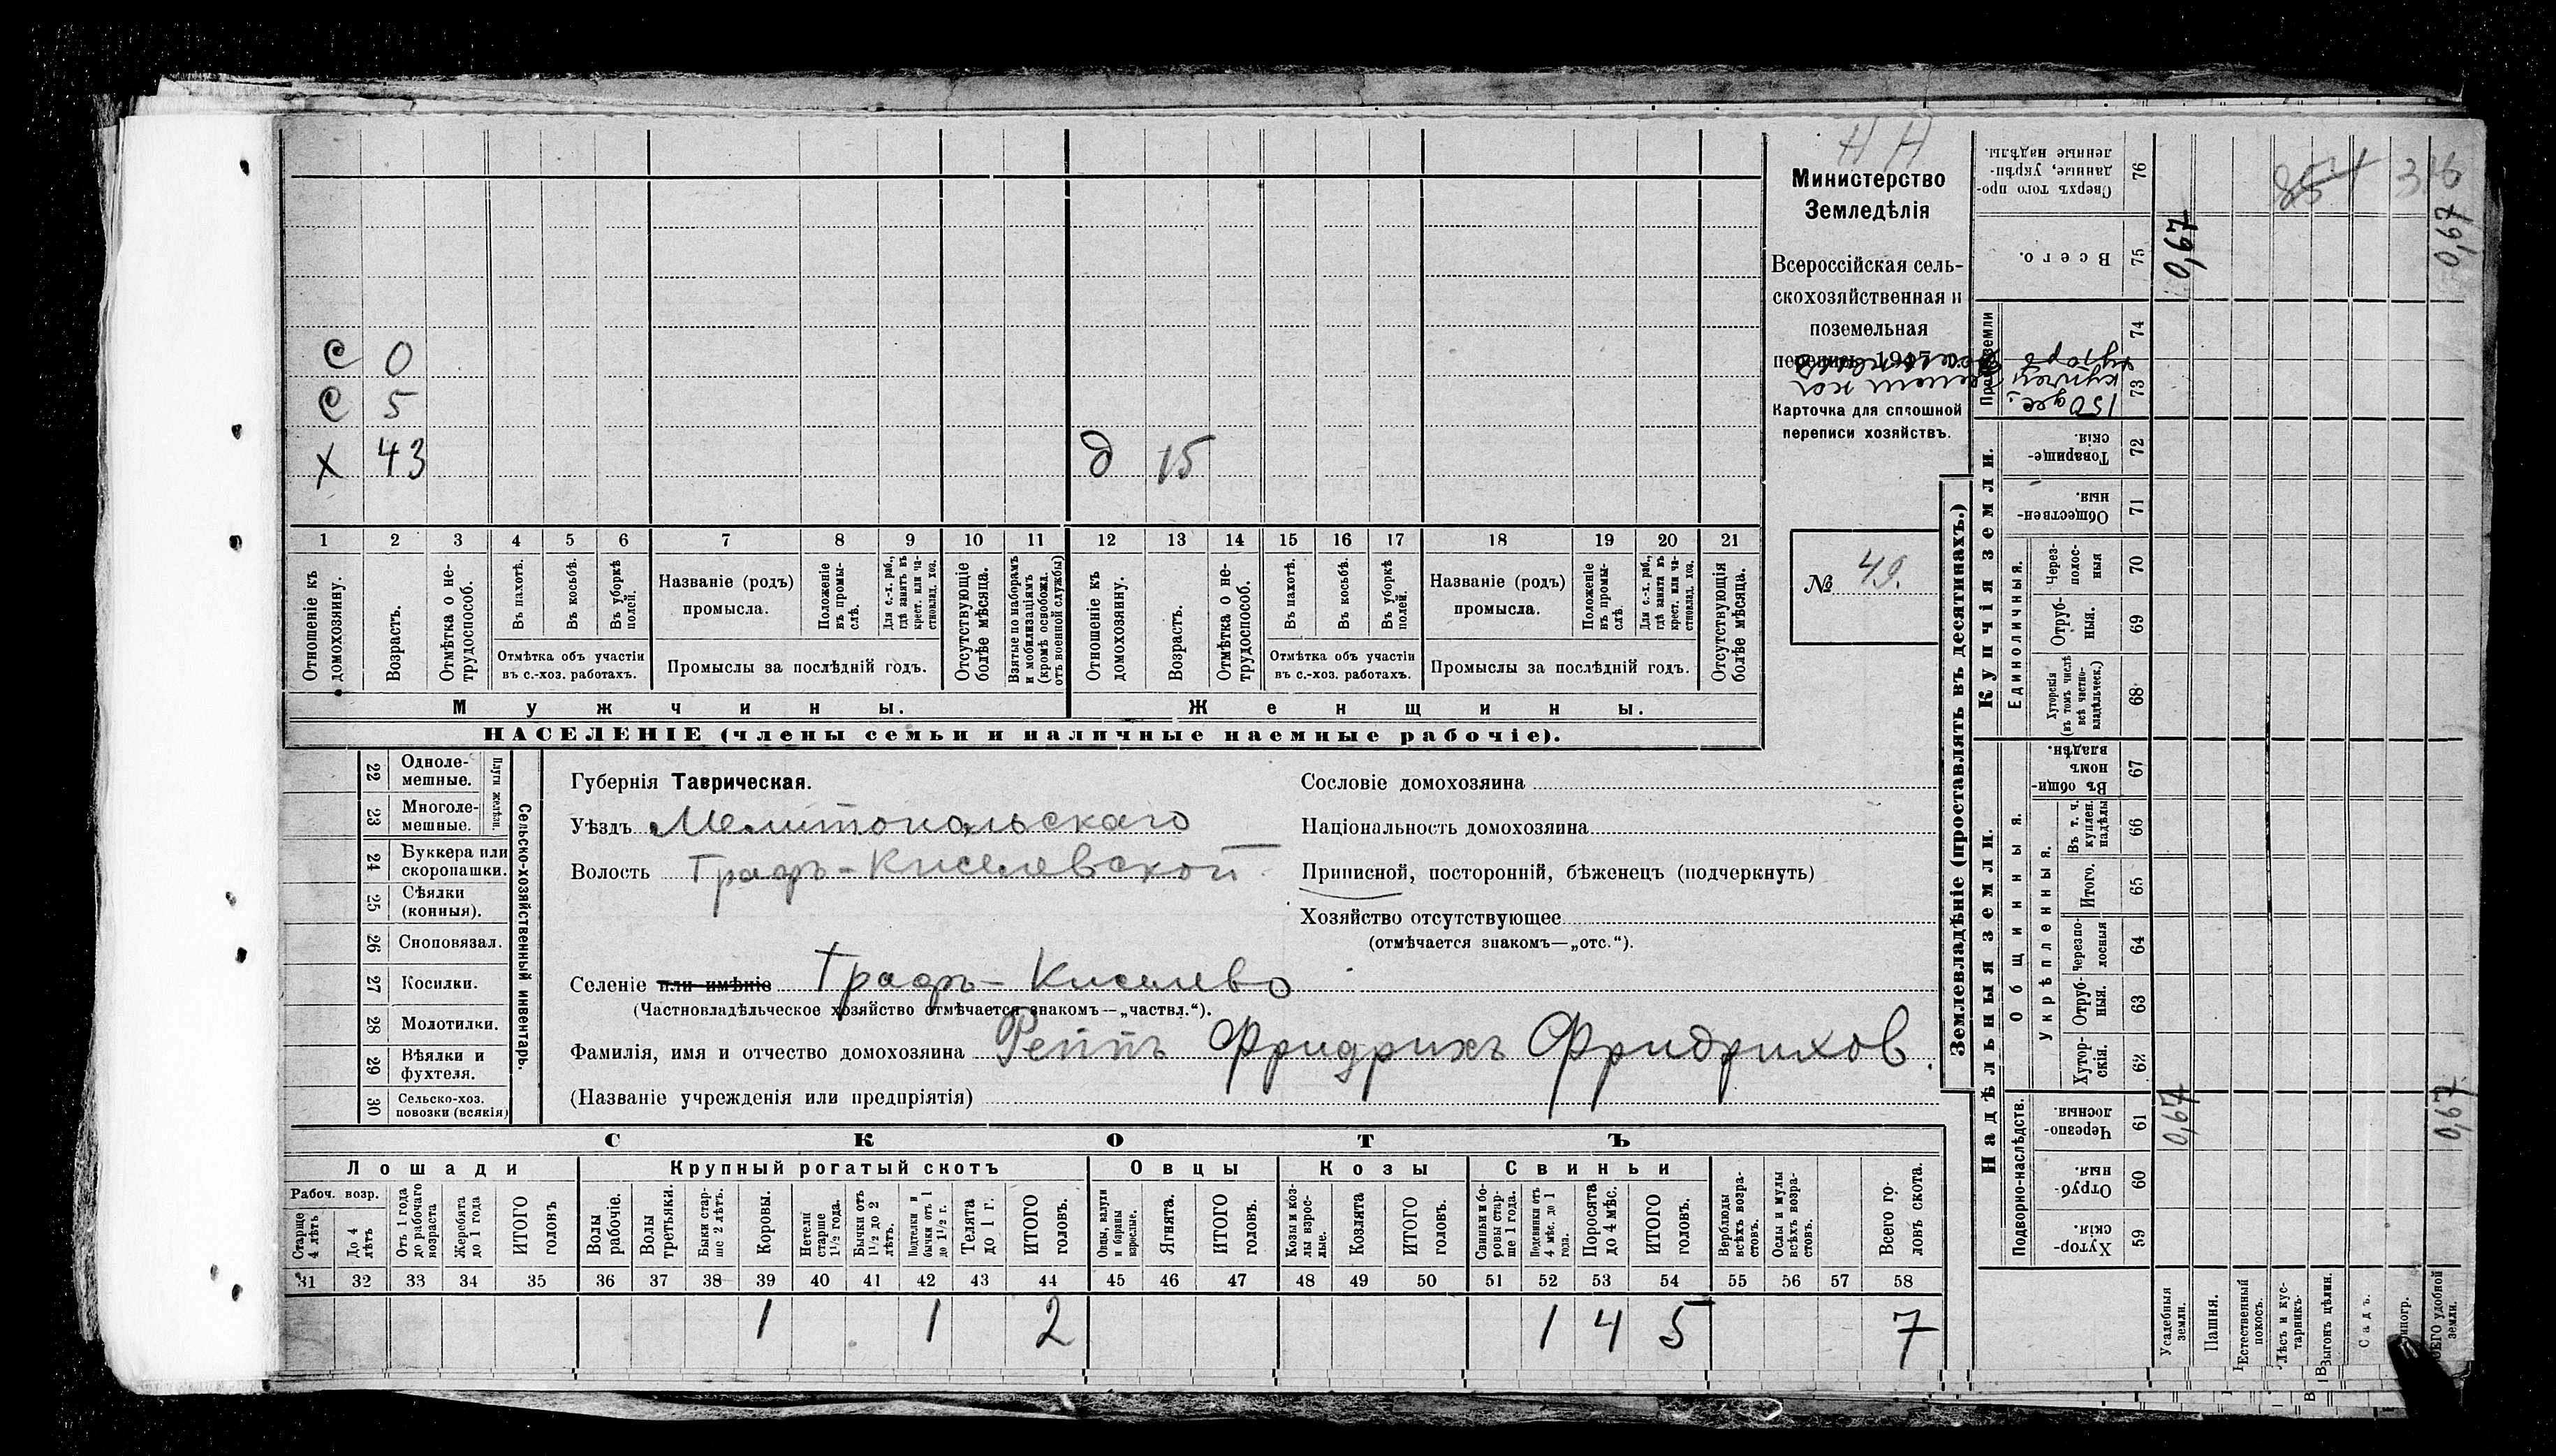 Н Н
Министерство
Земледѣлія
Всероссійская сель-
скохозяйственная и
поземельная
перепись 1917 г.
Карточка для сплошной
переписи хозяйствъ.
№ 49.
С 0
С 5
Х 43 д 15
1 2 3 4 5 6 7 8 9 10 11 12 13 14 15 16 17 18 19 20 21
Отношеніе къ домохозяину.
Возрастъ.
Отмѣтка о не-трудоспособ.
Въ пахотѣ.
Въ косьбѣ.
Въ уборкѣ полей.
Отмѣтка объ участіи
въ с.-хоз. работахъ.
Названіе (родъ)
промысла.
Положеніе въ промы-слѣ.
Для с.-х. раб., гдѣ занятъ въ крест. или ча-стновлад. хоз.
Промыслы за послѣдній годъ.
Отсутствующіе болѣе мѣсяца.
Взятые по наборамъ и мобилизаціямъ (кромѣ освобожд. отъ военной службы)
Отношеніе къ домохозяину.
Возрастъ.
Отмѣтка о не-трудоспособ.
Въ пахотѣ.
Въ косьбѣ.
Въ уборкѣ полей.
Отмѣтка объ участіи
въ с.-хоз. работахъ.
Названіе (родъ)
промысла.
Положеніе въ промы-слѣ.
Для с.-х. раб., гдѣ занята въ крест. или ча-стновлад. хоз.
Промыслы за послѣдній годъ.
Отсутствующія болѣе мѣсяца.
Мужчины. Женщины.
НАСЕЛЕНІЕ (члены семьи и наличные наемные рабочіе).
22 Одноле-мешные.
23 Многоле-мешные.
Плуги желѣзн.
24 Буккера или скоропашки.
25 Сѣялки (конныя).
26 Сноповязал.
27 Косилки.
28 Молотилки.
29 Вѣялки и фухтеля.
30 Сельско-хоз. повозки (всякія)
Сельско-хозяйственный инвентарь.
Губернія Таврическая.
Уѣздъ Мелитопольскаго
Волость Графъ-Киселевской
Селеніе или имѣніе Графъ-Киселево
(Частновладѣльческое хозяйство отмѣчается знакомъ—„частвл.“).
Фамилія, имя и отчество домохозяина Реппъ Фридрихъ Фридрихов.
(Названіе учрежденія или предпріятія)
Сословіе домохозяина
Національность домохозяина
Приписной, посторонній, бѣженецъ (подчеркнуть)
Хозяйство отсутствующее
(отмѣчается знакомъ—„отс.“).
СКОТЪ
Лошади Крупный рогатый скотъ Овцы Козы Свиньи
Рабоч. возр.
Старше 4 лѣтъ
До 4 лѣтъ
Отъ 1 года до рабочаго возраста
Жеребята до 1 года
ИТОГО головъ
Волы рабочіе.
Волы третьяки.
Быки стар-ше 2 лѣтъ.
Коровы.
Нетели старше 1½ года.
Бычки отъ 1½ до 2 лѣтъ.
Подтелки и бычки отъ 1 до 1½ г.
Телята до 1 г.
ИТОГО головъ.
Овцы, валухи и бараны взрослые.
Ягнята.
ИТОГО головъ.
Козы и коз-лы взрос-лые.
Козлята
ИТОГО головъ.
Свиньи и бо-ровы стар-ше 1 года.
Подсвинки отъ 4 мѣс. до 1 года.
Поросята до 4 мѣс.
ИТОГО головъ.
Верблюды всѣхъ возра-стовъ.
Ослы и мулы всѣхъ возра-стовъ.
Всего го-ловъ скота.
31 32 33 34 35 36 37 38 39 40 41 42 43 44 45 46 47 48 49 50 51 52 53 54 55 56 57 58
1 1 2 1 4 5 7
Землевладѣніе (проставлять въ десятинахъ.)
Купчія земли.
Надѣльныя земли.
Сверхъ того про-данные, укрѣп-ленные надѣлы. 76
Всего. 75 0,67 0,67
74
73
150 дес.
Товарище-скія. 72
Обществен-ныя. 71
Единоличныя.
Через-полос-ныя 70
Отруб-ныя. 69
Хуторскія (въ томъ числѣ всѣ частно-владѣльческ.) 68
Общинныя.
Въ общин-номъ владѣн. 67
Укрѣпленныя.
Въ т. ч. куплен. надѣлы 66
Итого. 65
Черезпо-лосныя 64
Отруб-ныя. 63
Хутор-скія. 62
Подворно-наслѣдств.
Черезпо-лосныя. 61 0,67 0,67
Отруб-ныя. 60
Хутор-скія. 59
Усадебныя земли.
Пашня.
Естественный покосъ.
Лѣсъ и кус-тарникъ.
Выгонъ цѣлин.
Садъ.
удобной земли.